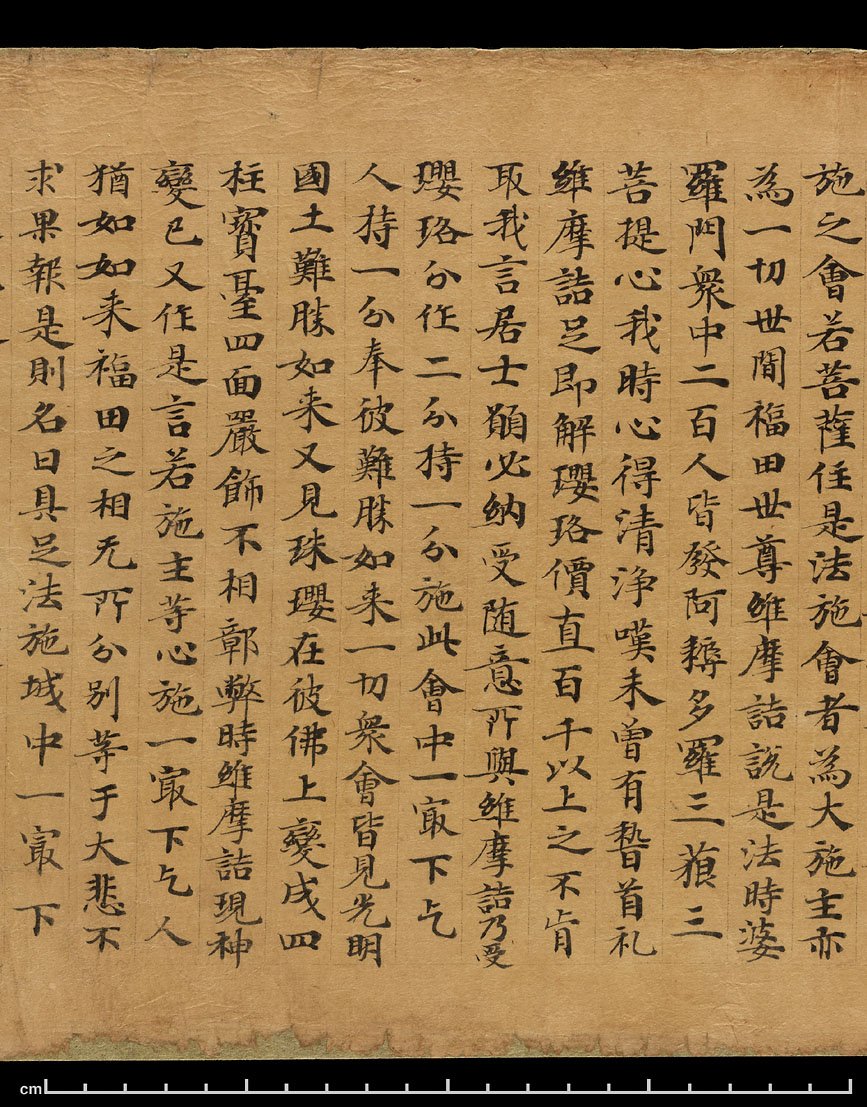 施之會若菩薩住是法施會者為大施主亦
為一切世間福田世尊維摩詰說是法時婆
羅門衆中二百人皆發阿耨多羅三藐三
菩提心我時心得清淨嘆未曾有稽首礼
維摩詰足即解瓔珞價直百千以上之不肯
取我言居士願必納受随意所與維摩詰乃受
瓔珞分作二分持一分施此會中一寂下乞
人持一分奉彼難勝如来一切衆會皆見光明
國土難勝如来又見珠瓔在彼佛上變成四
柱寶臺四面嚴飾不相鄣弊時維摩詰現神
變已又作是言若施主等心施一寂下乞人
猶如如来福田之相无所分别等于大悲不
求果報是則名曰具足法施城中一寂下
cm